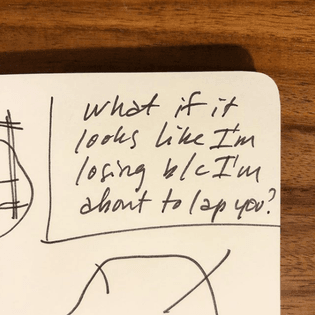 what if it
looks like I'm
losing b/c I'm
about to lap you?